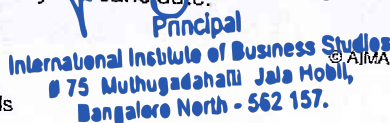 Principal
International Institute of Business Studies
© AIMA
# 75 Muthugadahalli Jala Hobli,
Bangalore North - 562 157.